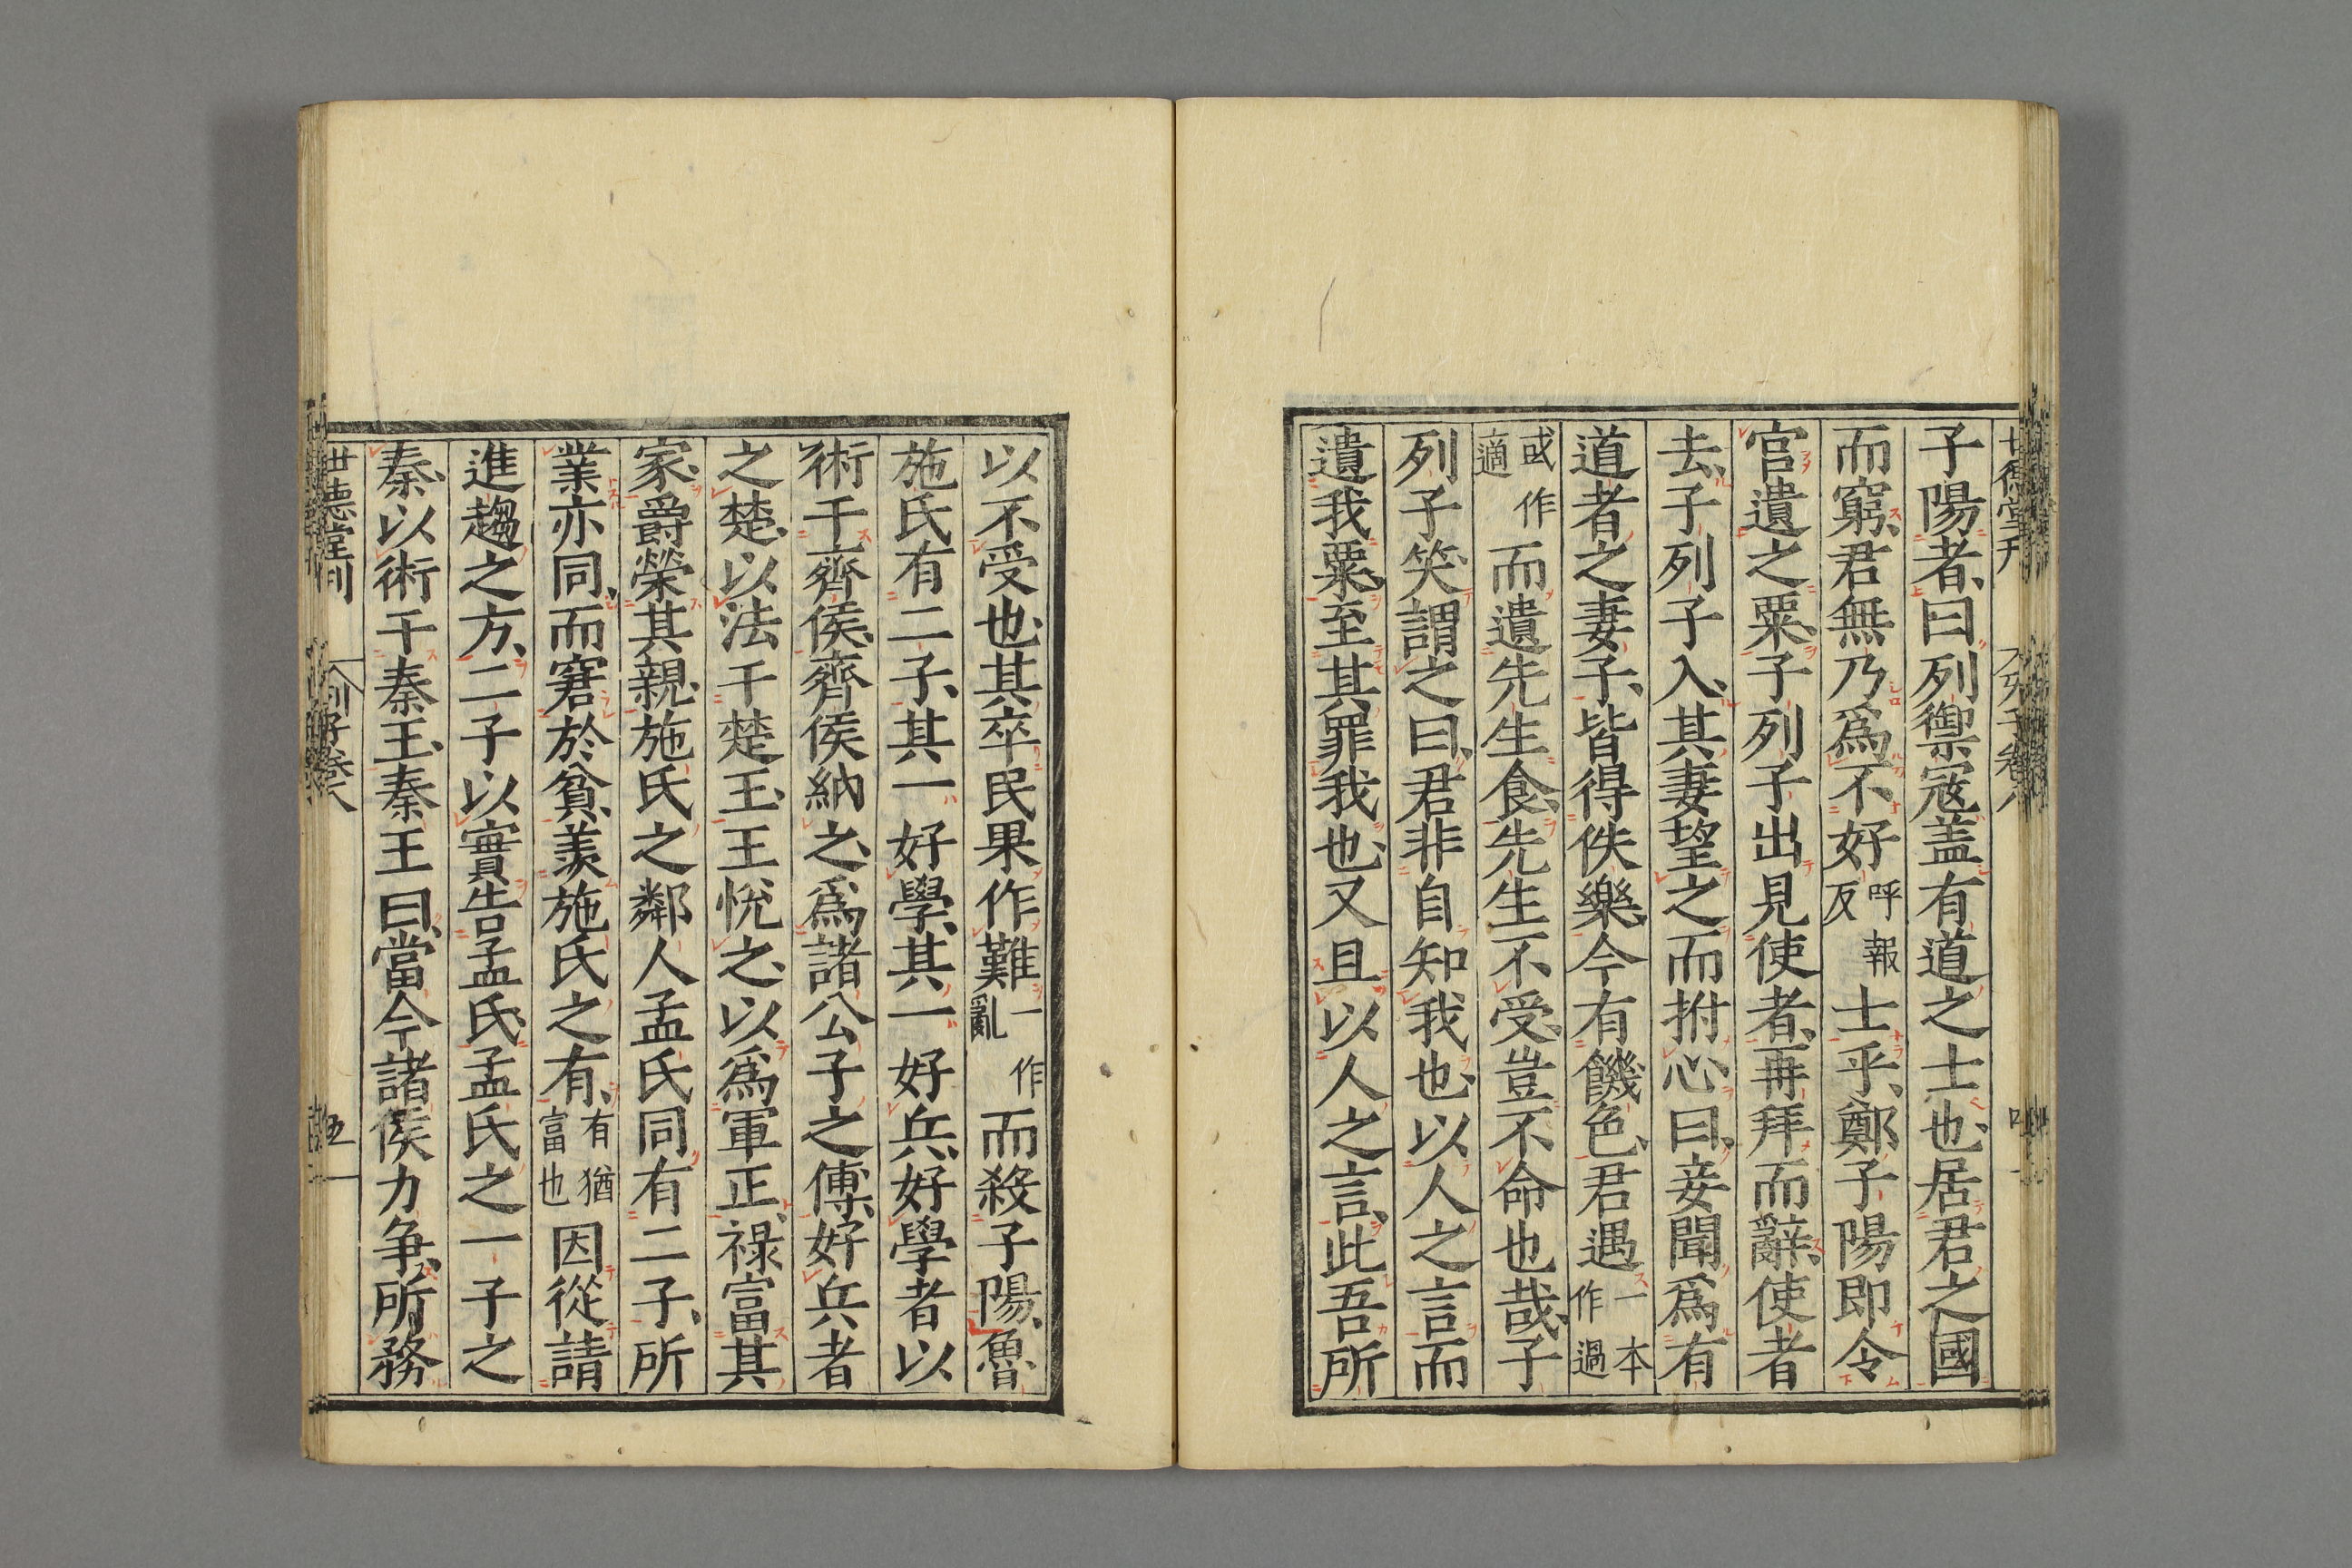 子陽者曰列禦寇盖有道之士也居君之國
而窮君無乃爲不好呼報反士乎鄭子陽即令
官遺之粟子列子出見使者再拜而辭使者
去子列子入其妻望之而拊心曰妾聞爲有
道者之妻子皆得佚樂今有饑色君遇一本作過
或作適而遺先生食先生不受豈不命也哉子
列子笑謂之曰君非自知我也以人之言而
遺我粟至其罪我也又且以人之言此吾所
以不受也其卒民果作難一作亂而殺子陽魯
施氏有二子其一好學其一好兵好學者以
術干齊侯齊侯納之爲諸公子之傅好兵者
之楚以法干楚王王悅之以爲軍正禄富其
家爵榮其親施氏之鄰人孟氏同有二子所
業亦同而窘於貧羨施氏之有有猶富也因從請
進趨之方二子以實告孟氏孟氏之一子之
秦以術干秦王秦王曰當今諸侯力争所務
世德堂刊 列子卷八 五